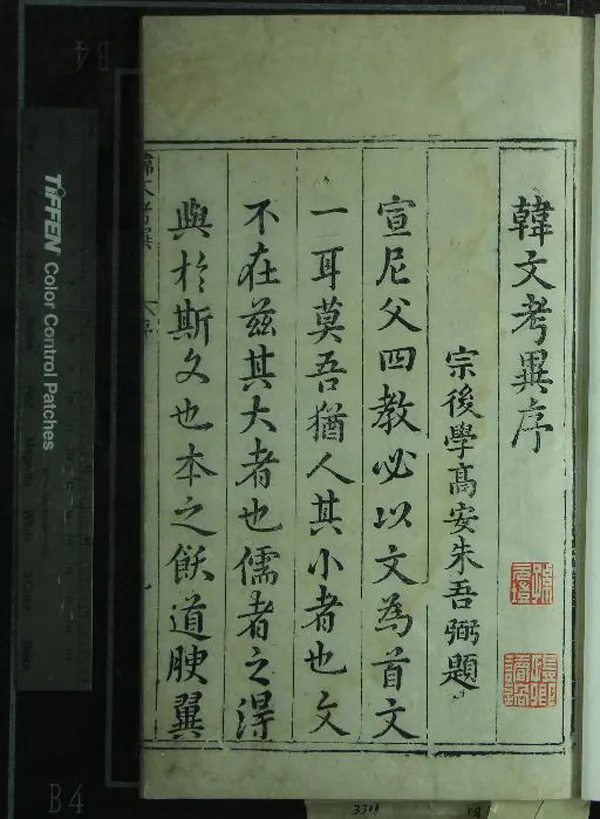 韓文考異序
宗後學高安朱吾弼題
宣尼父四教必以文為首文
一耳莫吾猶人其小者也文
不在茲其大者也儒者之得
與於斯文也本之飫道腴翼
TIFFEN Color Control Patches
B4
B4